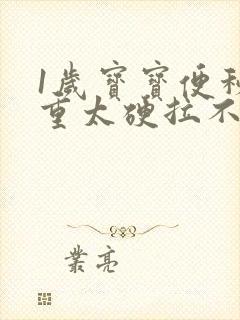 1歲寶寶便秘
重太硬拉不
業亮